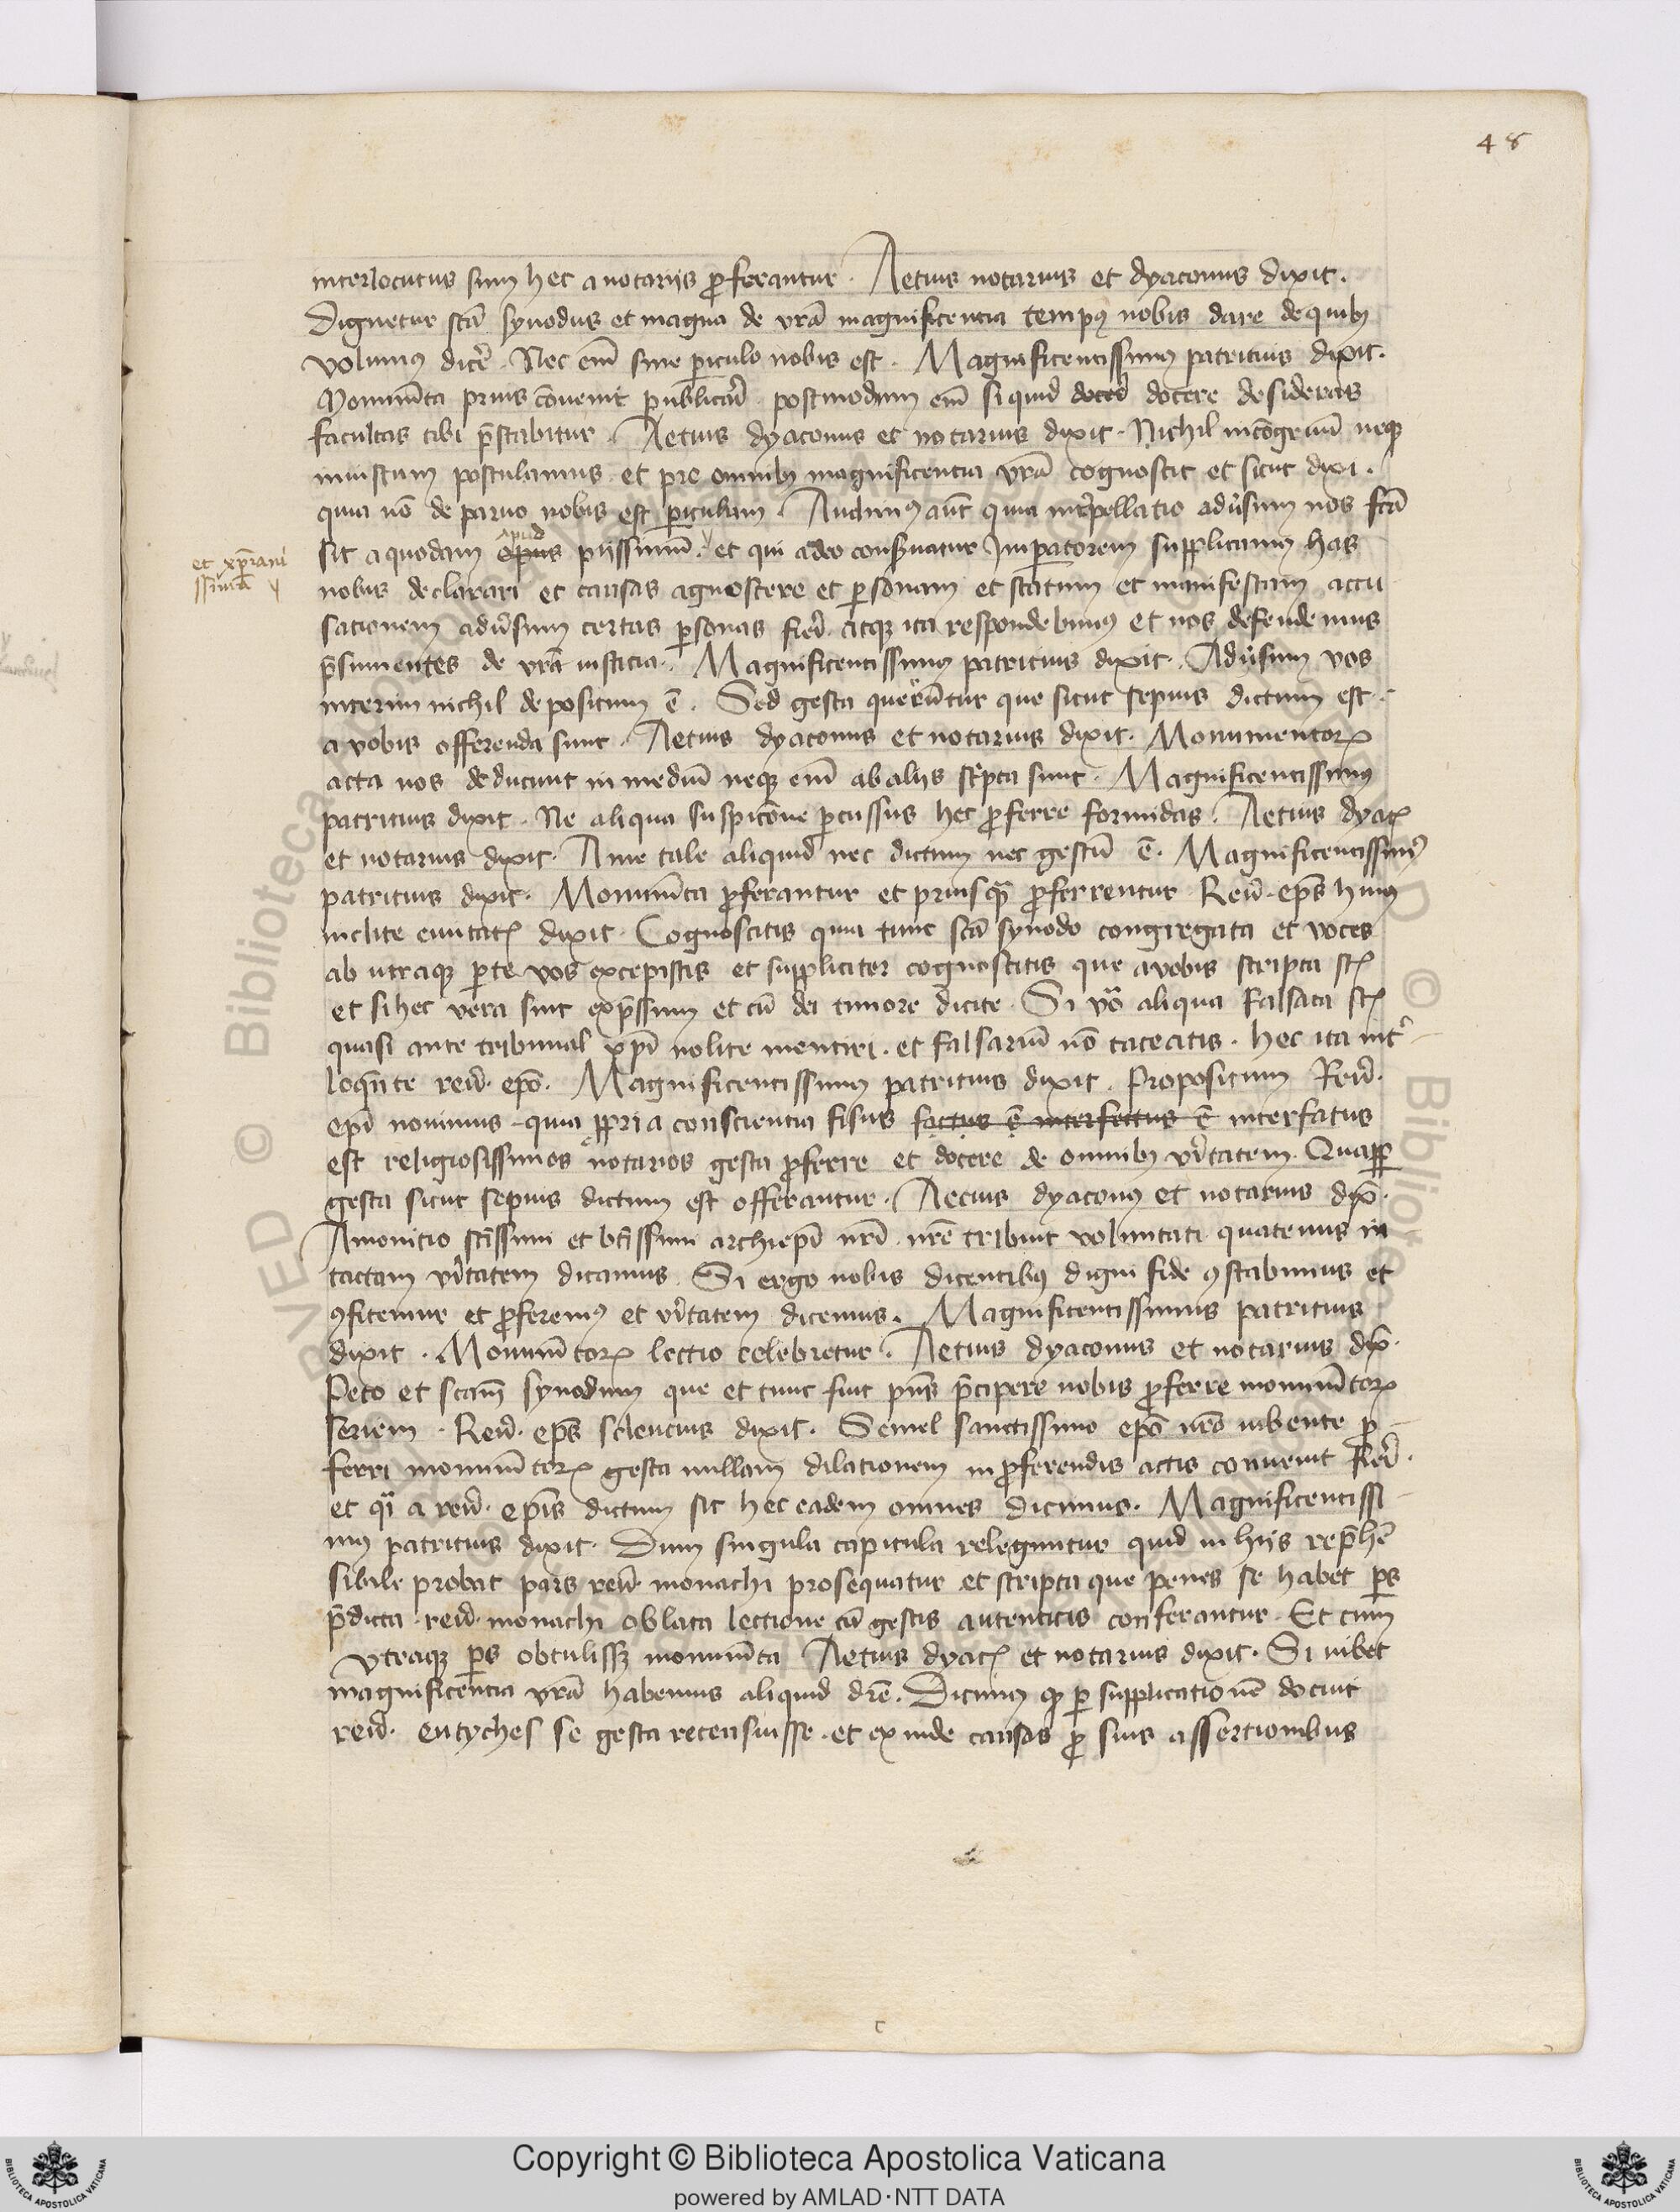 48
interlocutus sum hec a notarijs ꝓferantur. Aetius notarius et dyaconus dixit.
Dignetur scā synodus et magna de vrā magnificencia tempꝰ nobis dare de quibꝫ
volumꝰ dicē. Nec eīm sine ꝑiculo nobis est. Magnificentissimꝰ patritius dixit.
Monumīta prius cōuenit publicari postmodum eīm si quid doced docere desideras
facultas tibi p̄stabitur. Aetius dyaconus et notarius dixit. Nichil incōgruū neqꝫ
iniustum postulamus et pre omnibꝫ magnificencia vrā cognoscit et sicut dixi.
quia nō de paruo nobis est ꝑiculum. Audimꝰ aūt quia int̄pellatio adūsum nos fcā
sit a quodam epus apud pijssimū. et qui a deo conseruatur Imꝑatorem supplicamꝰ has
et xp̄iani
ssimū
nobis declarari et causas agnoscere et ꝑsonam et scatum et manifestam accu
sationem adūsum certas ꝑsonas fieri. atqꝫ ita respondebimꝰ et nos defendemus
p̄sumentes de vrā iusticia. Magnificentissimꝰ patritius dixit. Adūsum vos
interim nichil depositum ē. Sed gesta querūtur que sicut sepius dictum est.
a vobis offerenda sunt. Aetius dyaconus et notarius dixit. Monumentoꝝ
acta nos deducunt in mediū neqꝫ eīm ab alijs sc̄pta sunt. Magnificentissimꝰ
patritius dixit. Ne aliqua suspicōne ꝑcussus hec ꝓferre formidas. Aetius dyacꝰ
et notarius dixit. A me tale aliquid nec dictum nec gestū ē. Magnificentissimꝰ
patritius dixit. Monumīta ꝓferantur et priusqͣ ꝓferrentur Reuꝰ. ep̄s huiꝰ
inclite ciuitatꝭ dixit. Cognoscitis quia tunc scā synodo congregata et voces
ab utraqꝫ ꝑte vos excepistis et suppliciter cognoscitis que a vobis scripta sꝭ
et si hec vera sint exp̄ssum et cū dei timore dicite. Si vō aliqua falsata sꝭ
quasi ante tribunal xp̄i nolite mentiri. et falsariū nō taceatis. hec ita int̄
loqūte reuꝰ. ep̄o. Magnificentissimus patritius dixit. Propositum Reuꝰ.
ep̄i nouimus. quia ꝓpria consciencia fisus factus ē interfectus ē interfatus
est religiosissimos notarios gesta ꝓferre et docere de omnibꝫ v̄itatem. Quaꝓꝑ
gesta sicut sepius dictum est offerantur. Aecius dyaconꝰ et notarius dix̄.
Amonitio sc̄issimi et bt̄issimi archiep̄i nr̄i. nr̄e tribuit voluntati quatenus in
tactam v̄itatem dicamus. Si ergo nobis dicentibꝰ digni fide ꝯstabimus et
ꝯfitemur et ꝓferemꝰ et v̄itatem dicemus. Magnificentissimus patritius
dixit. Monumītoꝝ lectio celebretur. Aetius dyaconus et notarius dix̄.
Peto et scam̄ synodum que et tunc fuit pn̄s p̄cipere nobis ꝓferre monumītoꝝ
seriem. Reuꝰ. ep̄s seleucius dixit. Semel sanctissimo ep̄o nrō iubente ꝓ
ferri monumītoꝝ gesta nullam dilationem in ꝓferendis actis conuenit fieri.
et qͣ a reuꝰ. ep̄is dictum sit hec eadem omnes dicimus. Magnificentissi
mꝰ patritius dixit. Dum singula capitula releguntur quid in hijs rep̄hē
sibile probat pars reuꝰ. monachi prosequatur et scripta que penes se habet ꝑs
p̄dicta reuꝰ. monachi oblata lectione cū gestis autenticis conferantur. Et cum
vtraqꝫ ꝑs obtulissꝫ monumīta Aetius dyacꝰ et notarius dixit. Si iubet
magnificencia vrā habemus aliquid drē. Dicimꝰ qꝫ ꝑ supplicationē docuit
reuꝰ. eutyches se gesta recensuisse. et exinde causas ꝓ suis assertionibus
Copyright © Biblioteca Apostolica Vaticana
powered by AMLAD·NTT DATA